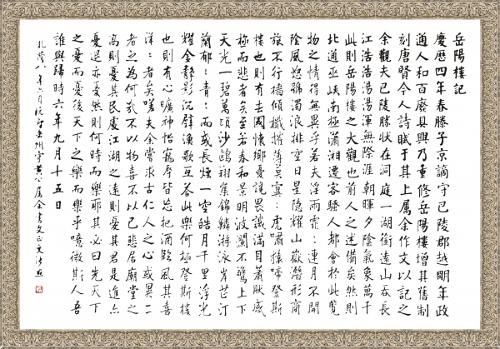 岳陽樓記
慶歷四年春滕子京謫守巴陵郡越明年政
通人和百廢具興乃重修岳陽樓增其舊制
刻唐賢今人詩賦于其上屬余作文以記之
余觀夫巴陵勝狀在洞庭一湖銜遠山吞長
江浩浩湯湯渾無際涯朝暉夕陰氣象萬千
此則岳陽樓之大觀也前人之述備矣然則
北通巫峽南極瀟湘遷客騷人都會於此覽
物之情得無異乎若夫淫雨霏霏連月不開
陰風怒號濁浪排空日星隱耀山嶽潛形商
旅不行檣傾檝摧薄暮冥冥虎嘯猿啼登斯
樓也則有去國懷鄉憂讒畏譏滿目蕭然感
極而悲者矣至若春和景明波瀾不驚上下
天光一碧萬頃沙鷗翔集錦鱗游泳岸芷汀
蘭郁郁青青而或長煙一空皓月千里浮光
耀金靜影沉璧漁歌互答此樂何極登斯樓
也則有心曠神怡寵辱皆忘把酒臨風其喜
洋洋者矣嗟夫余嘗求古仁人之心或異二
者之為何哉不以物喜不以己悲居廟堂之
高則憂其民處江湖之遠則憂其君是進亦
憂退亦憂然則何時而樂耶其必曰先天下
之憂而憂後天下之樂而樂乎噫微斯人吾
誰與歸時六年九月十五日